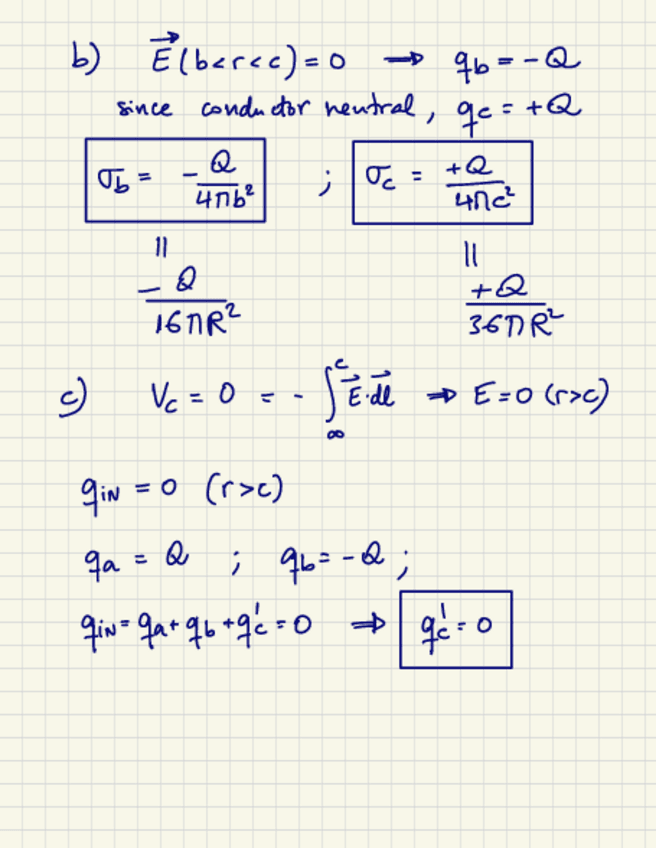 b) E⃗(b<r<c)=0 → q_b = -Q
since conductor neutral, q_c = +Q
σ_b = -Q/4πb² ; σ_c = +Q/4πc²
|| ||
-Q/16πR² +Q/36πR²
c) V_c = 0 = - ∫_∞^c E⃗·dl⃗ ⇒ E=0 (r>c)
q_IN = 0 (r>c)
q_a = Q ; q_b = -Q ;
q_IN = q_a + q_b + q_c' = 0 ⇒ q_c' = 0